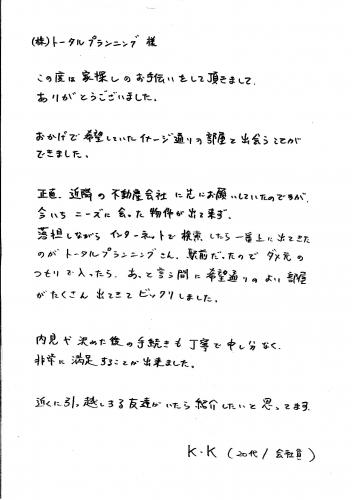 (株)トータルプランニング 様
この度は家探しのお伝いをして頂きまして、
ありがとうございました。
おかげで希望していたイメージ通りの部屋と出会うことが
できました。
正直、近隣の不動産会社に先にお願いしていたのですが、
今いちニーズに合った物件が出て来ず、
落胆しながらインターネットで検索したら一番上に出てきた
のがトータルプランニングさん。駅前だったのでダメ元の
つもりで入ったら、あっと言う間に希望通りのよい部屋
がたくさん出てきてビックリしました。
内見や決めた後の手続きも丁寧で申し分なく、
非常に満足することが出来ました。
近くに引っ越しする友達がいたら紹介したいと思ってます。
K・K (20代/会社員)